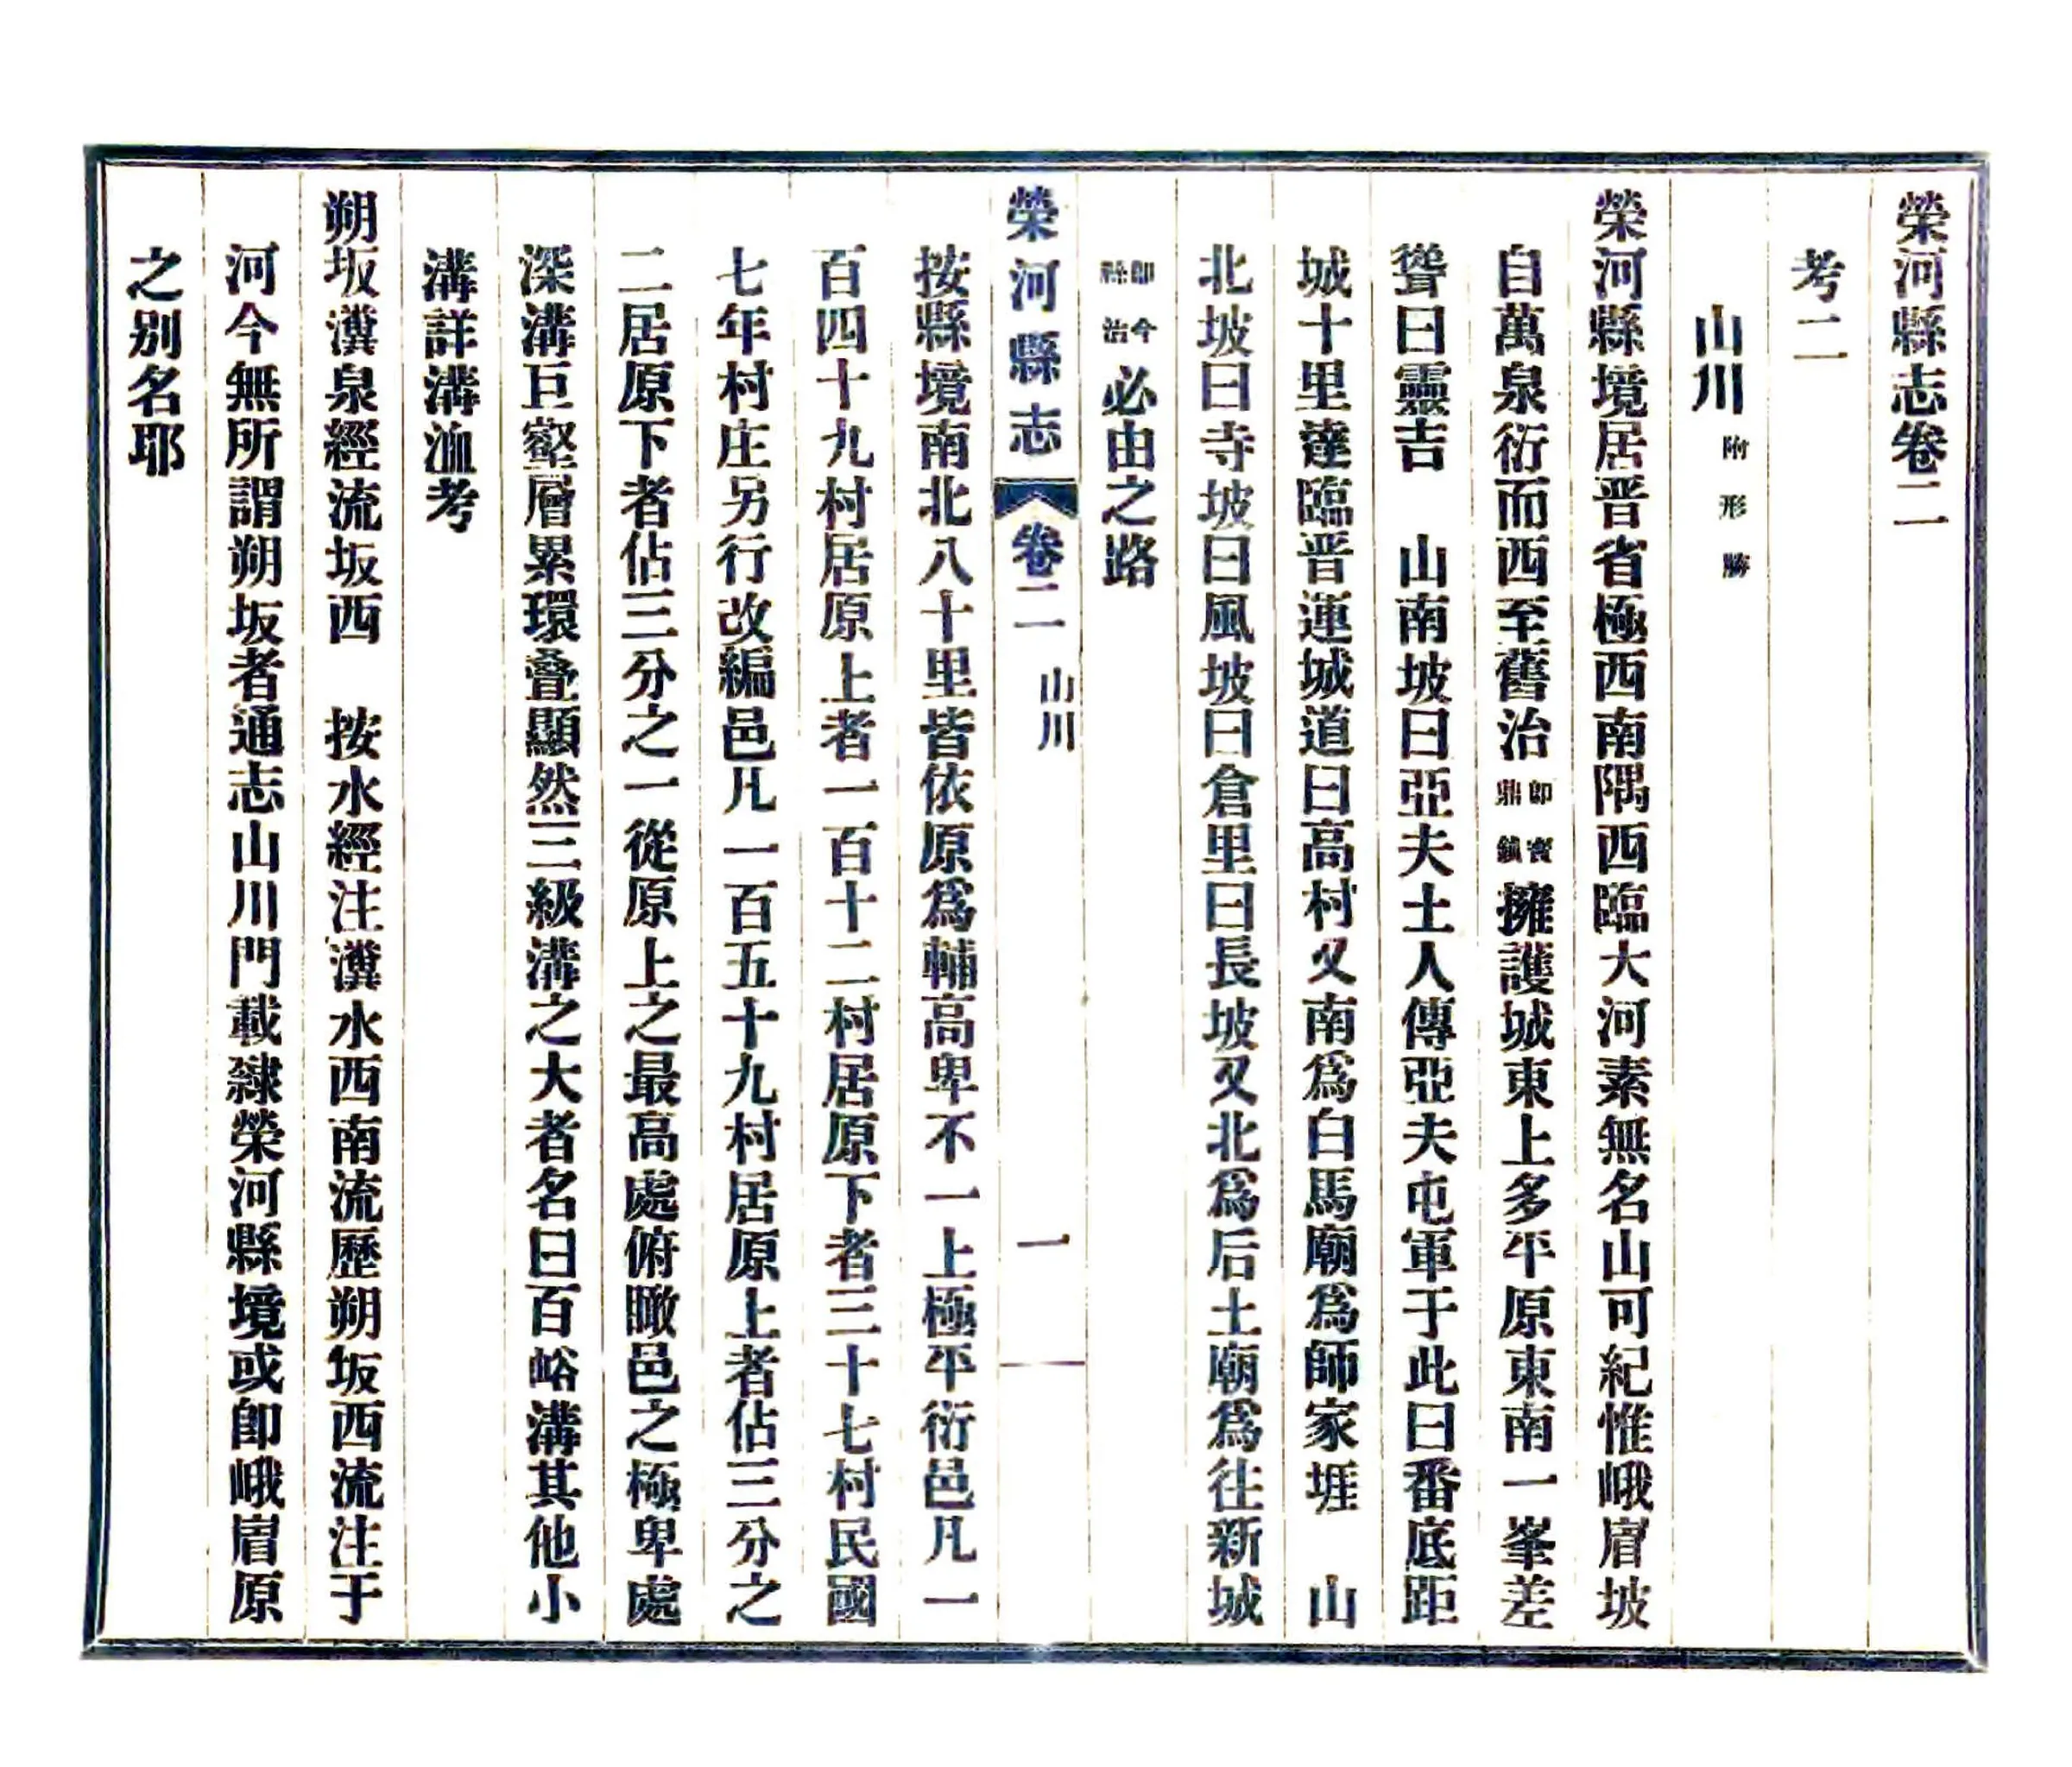 榮河縣志卷二
考二
山川附形勝
榮河縣境居晋省極西南隅西臨大河素無名山可紀惟峨眉坡
自萬泉衍而西至舊治即寳鼎鎮擁護城東上多平原東南一峯差
聳曰靈吉　山南坡曰亞夫土人傳亞夫屯軍于此曰番底距
城十里達臨晋運城道曰高村又南爲白馬廟爲師家堐　山
北坡曰寺坡曰風坡曰倉里曰長坡又北爲后土廟爲往新城
即今縣治必由之路
榮河縣志　卷二　山川　一
按縣境南北八十里皆依原爲輔高卑不一上極平衍邑凡一
百四十九村居原上者一百十二村居原下者三十七村民國
七年村庄另行改編邑凡一百五十九村居原上者佔三分之
二居原下者佔三分之一從原上之最高處俯瞰邑之極卑處
深溝巨壑層累環叠顯然三級溝之大者名曰百峪溝其他小
溝詳溝洫考
朔坂瀵泉經流坂西　按水經注瀵水西南流歷朔坂西流注于
河今無所謂朔坂者通志山川門載隸榮河縣境或卽峨眉原
之别名耶